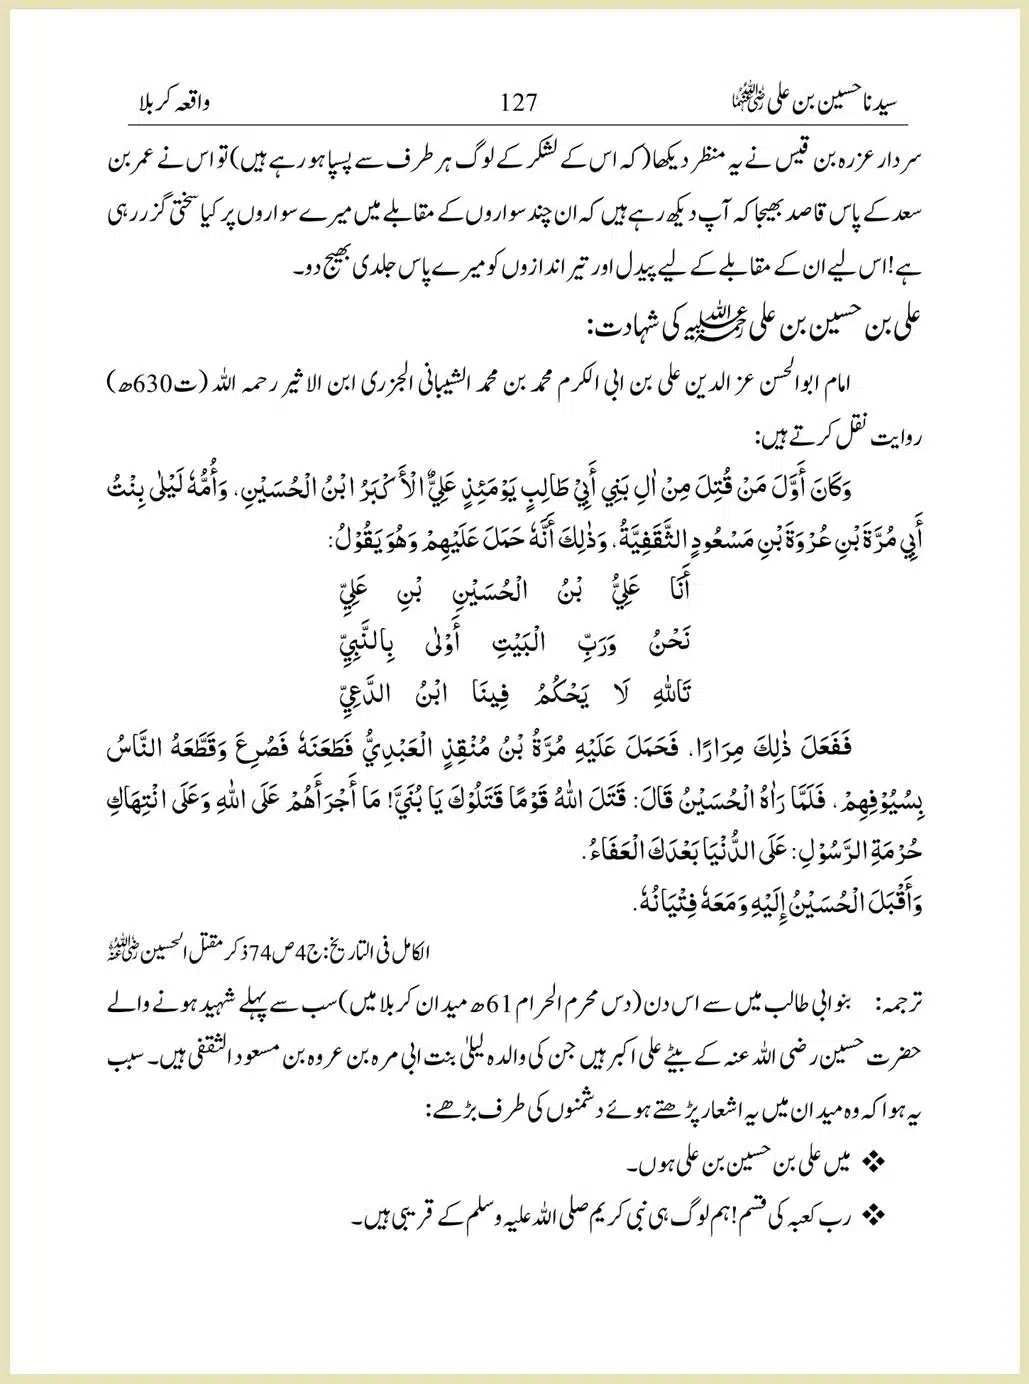 سیدنا حسین بن علی رضی اللہ عنہما 127 واقعہ کربلا
سردار عزرہ بن قیس نے یہ منظر دیکھا (کہ اس کے لشکر کے لوگ ہر طرف سے پسپا ہو رہے ہیں) تو اس نے عمر بن
سعد کے پاس قاصد بھیجا کہ آپ دیکھ رہے ہیں کہ ان چند سواروں کے مقابلے میں میرے سواروں پر کیا سختی گزر رہی
ہے! اس لیے ان کے مقابلے کے لیے پیدل اور تیر اندازوں کو میرے پاس جلدی بھیج دو۔
علی بن حسین بن علی رحمۃ اللہ علیہ کی شہادت:
امام ابوالحسن عز الدین علی بن ابی الکرم محمد بن محمد الشیبانی الجزری ابن الاثیر رحمہ اللہ (ت630ھ)
روایت نقل کرتے ہیں:
وَكَانَ أَوَّلَ مَنْ قُتِلَ مِنْ اٰلِ بَنِي أَبِيْ طَالِبٍ يَوْمَئِذٍ عَلِيٌّ الْأَكْبَرُ ابْنُ الْحُسَيْنِ، وَأُمُّهٗ لَيْلٰى بِنْتُ
أَبِي مُرَّةَ بْنِ عُرْوَةَ بْنِ مَسْعُودٍ الثَّقَفِيَّةُ، وَذٰلِكَ أَنَّهٗ حَمَلَ عَلَيْهِمْ وَهُوَ يَقُوْلُ:
أَنَا عَلِيُّ بْنُ الْحُسَيْنِ بْنِ عَلِيِّ
نَحْنُ وَرَبِّ الْبَيْتِ أَوْلٰى بِالنَّبِيِّ
تَاللهِ لَا يَحْكُمُ فِينَا ابْنُ الدَّعِيِّ
فَفَعَلَ ذٰلِكَ مِرَارًا، فَحَمَلَ عَلَيْهِ مُرَّةُ بْنُ مُنْقِذٍ الْعَبْدِيُّ فَطَعَنَهٗ فَصُرِعَ وَقَطَّعَهُ النَّاسُ
بِسُيُوْفِهِمْ، فَلَمَّا رَاٰهُ الْحُسَيْنُ قَالَ: قَتَلَ اللهُ قَوْمًا قَتَلُوْكَ يَا بُنَيَّ! مَا أَجْرَأَهُمْ عَلَى اللهِ وَعَلَى انْتِهَاكِ
حُرْمَةِ الرَّسُوْلِ: عَلَى الدُّنْيَا بَعْدَكَ الْعَفَاءُ.
وَأَقْبَلَ الْحُسَيْنُ إِلَيْهِ وَمَعَهٗ فِتْيَانُهٗ.
الکامل فی التاریخ: ج4 ص74 ذکر مقتل الحسین رضی اللہ عنہ
ترجمہ: بنو ابی طالب میں سے اس دن (دس محرم الحرام 61ھ میدان کربلا میں) سب سے پہلے شہید ہونے والے
حضرت حسین رضی اللہ عنہ کے بیٹے علی اکبر ہیں جن کی والدہ لیلیٰ بنت ابی مرہ بن عروہ بن مسعود الثقفی ہیں۔ سبب
یہ ہوا کہ وہ میدان میں یہ اشعار پڑھتے ہوئے دشمنوں کی طرف بڑھے:
❖ میں علی بن حسین بن علی ہوں۔
❖ رب کعبہ کی قسم! ہم لوگ ہی نبی کریم صلی اللہ علیہ وسلم کے قریبی ہیں۔